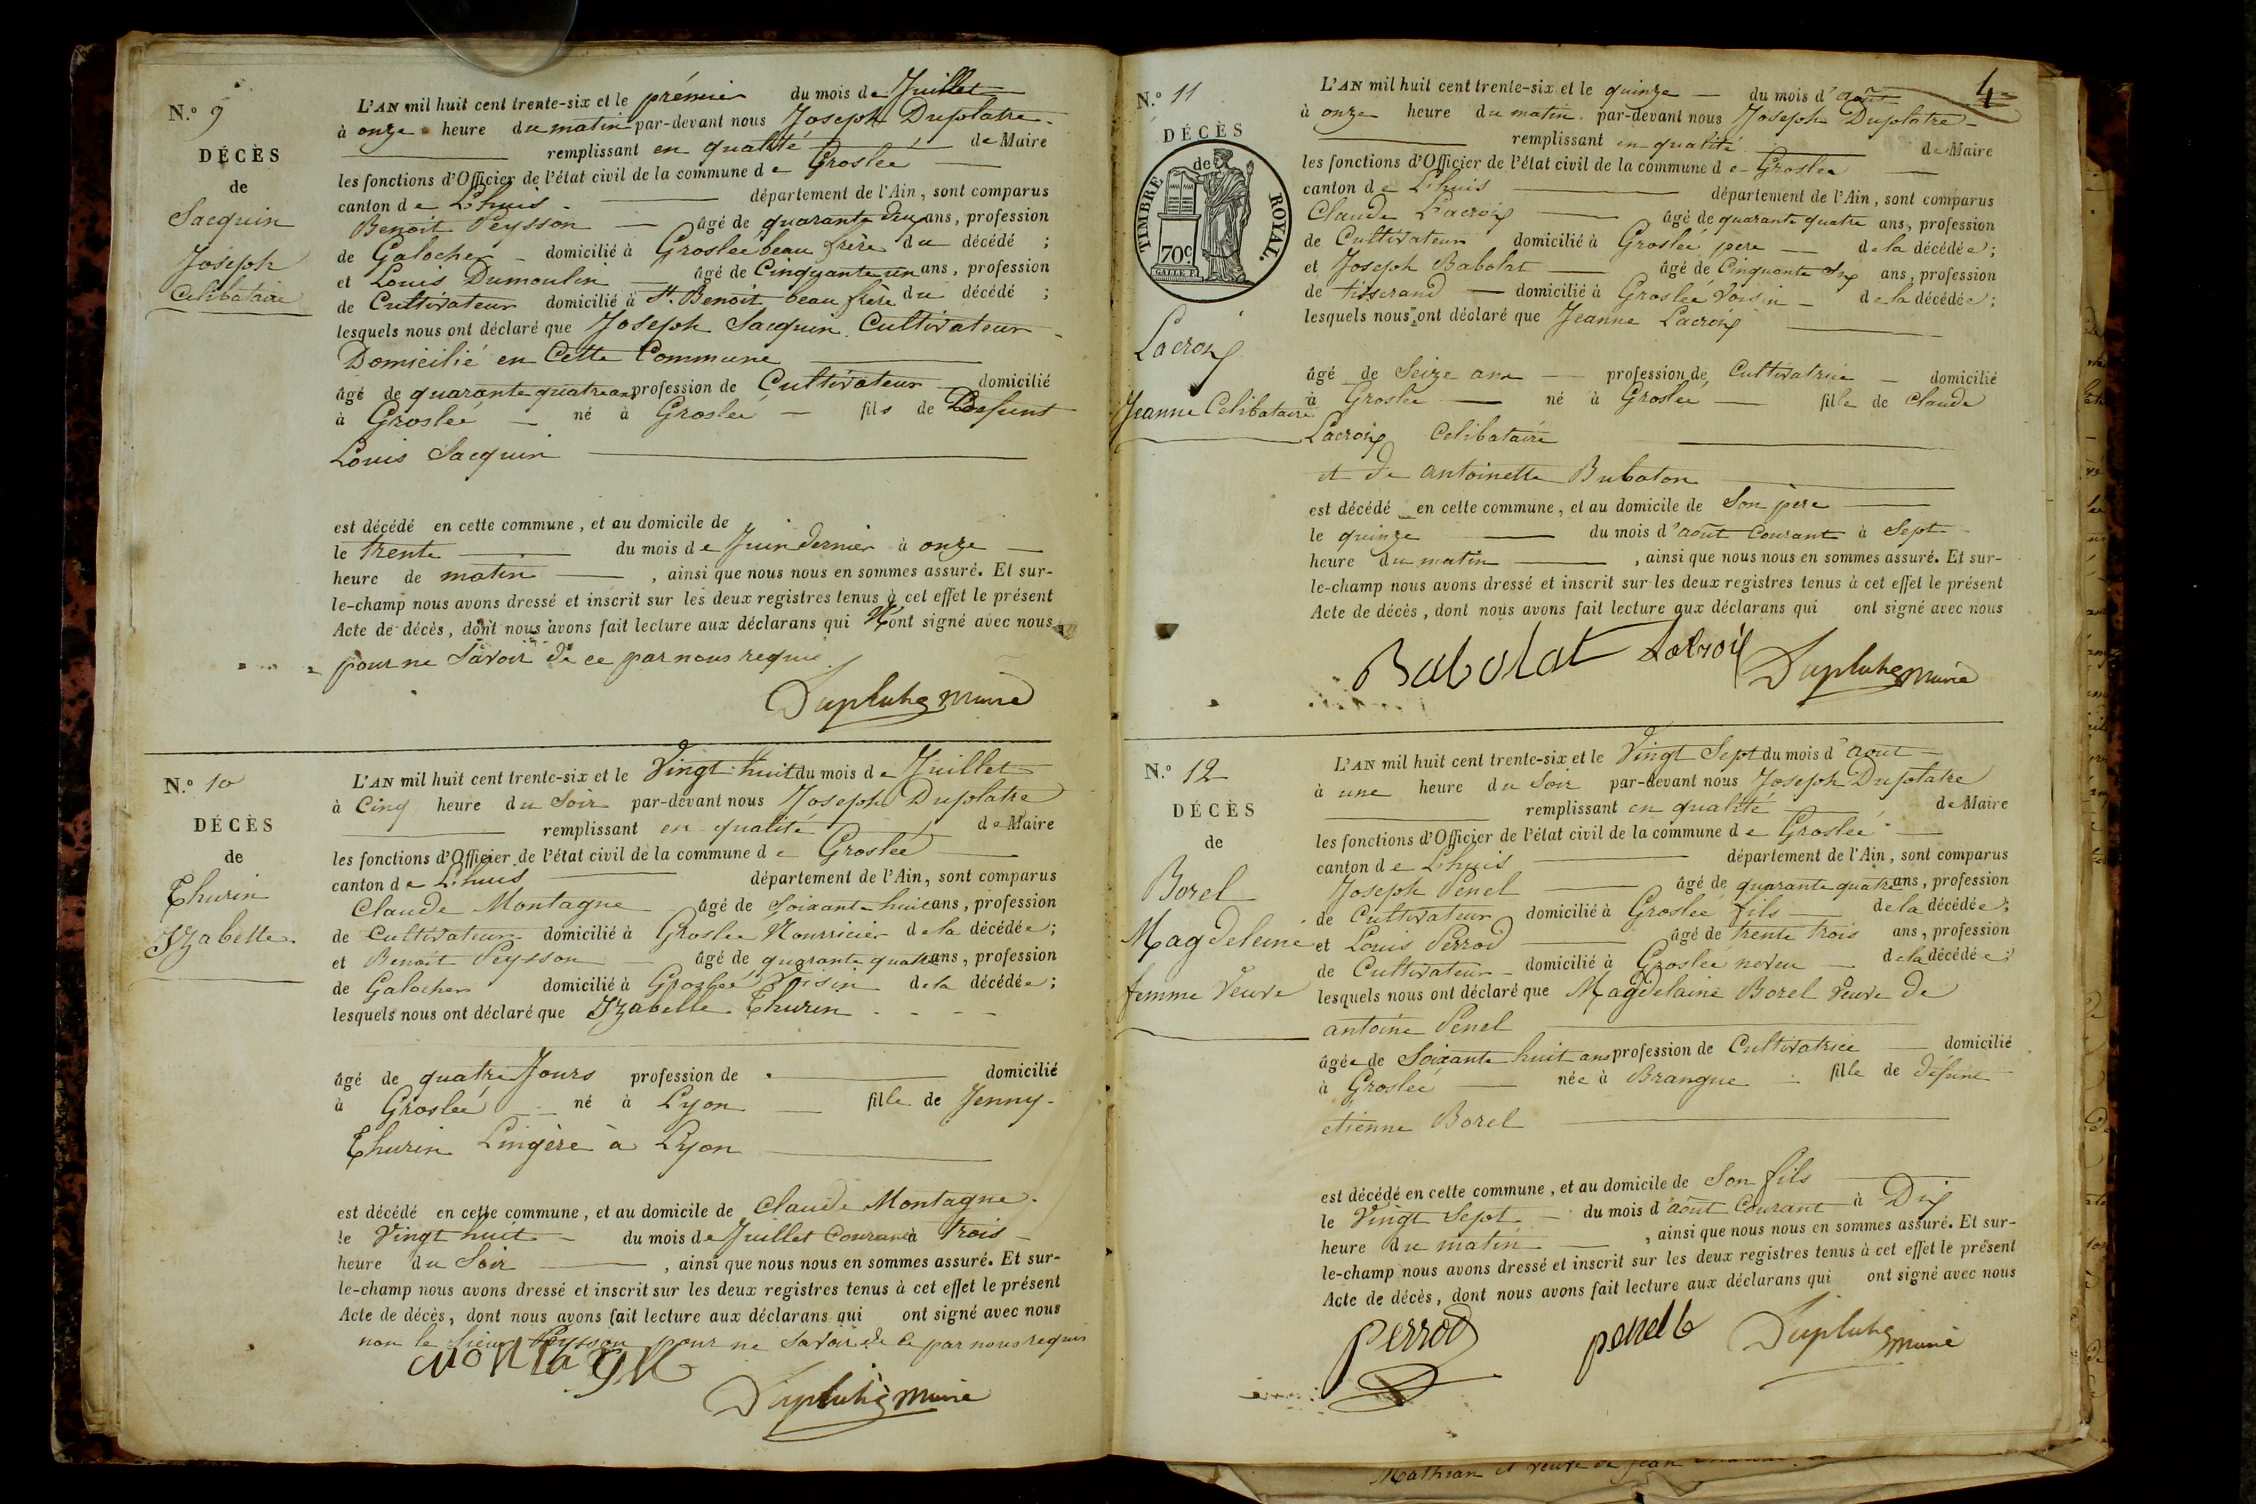 N.º 9
DÉCÈS
de
Sacquin
Joseph
Celibataire
L'AN mil huit cent trente-six et le prémier du mois de Juillet
à onze heure du matin par-devant nous Joseph Duplatre
remplissant en qualité de Maire
les fonctions d'Officier de l'état civil de la commune de Groslée
canton de Lhuis département de l'Ain, sont comparus
Benoit Peysson âgé de quarante ans, profession
de Galocher domicilié à Groslée beau frère du décédé ;
et Louis Dumoulin âgé de Cinquante un ans, profession
de Cultivateur domicilié à St. Benoit beau frère du décédé ;
lesquels nous ont déclaré que Joseph Sacquin Cultivateur
Domicilié en Cette Commune
âgé de quarante quatre ans profession de Cultivateur domicilié
à Groslée né à Groslée fils de Defunt
Louis Sacquin
est décédé en cette commune, et au domicile de
le trente du mois de Juin dernier à onze
heure de matin, ainsi que nous nous en sommes assuré. Et sur-
le-champ nous avons dressé et inscrit sur les deux registres tenus à cet effet le présent
Acte de décès, dont nous avons fait lecture aux déclarans qui N'ont signé avec nous
pour ne Savoir de ce par nous requis.
Duplatre maire
N.º 10
DÉCÈS
de
Thurin
Izabelle
L'AN mil huit cent trente-six et le Vingt huit du mois de Juillet
à Cinq heure du Soir par-devant nous Joseph Duplatre
remplissant en qualité de Maire
les fonctions d'Officier de l'état civil de la commune de Groslée
canton de Lhuis département de l'Ain, sont comparus
Claude Montagne âgé de Soixante huit ans, profession
de Cultivateur domicilié à Groslée Nourricier de la décédée ;
et Benoit Peysson âgé de quarante quatre ans, profession
de Galocher domicilié à Groslée Voisin de la décédée ;
lesquels nous ont déclaré que Izabelle Thurin
âgé de quatre Jours profession de domicilié
à Groslée né à Lyon fille de Jenny
Thurin Lingère à Lyon
est décédé en cette commune, et au domicile de Claude Montagne
le Vingt huit du mois de Juillet Courant à trois
heure du Soir, ainsi que nous nous en sommes assuré. Et sur-
le-champ nous avons dressé et inscrit sur les deux registres tenus à cet effet le présent
Acte de décès, dont nous avons fait lecture aux déclarans qui ont signé avec nous
non le Sieur Peysson pour ne Savoir de Ce par nous requis
Duplatre maire
4
N.º 11
DÉCÈS
de
TIMBRE ROYAL.
70c.
Lacroix
Jeanne Celibataire
L'AN mil huit cent trente-six et le quinze du mois d'août
à onze heure du matin par-devant nous Joseph Duplatre
remplissant en qualité de Maire
les fonctions d'Officier de l'état civil de la commune de Groslée
canton de Lhuis département de l'Ain, sont comparus
Claude Lacroix âgé de quarante quatre ans, profession
de Cultivateur domicilié à Groslée père de la décédée ;
et Joseph Babolat âgé de Cinquante Six ans, profession
de tisserand domicilié à Groslée Voisin de la décédée ;
lesquels nous ont déclaré que Jeanne Lacroix
âgé de Seize ans profession de Cultivatrice domicilié
à Groslée né à Groslée fille de Claude
Lacroix Celibataire
et de antoinette Bubaton
est décédé en cette commune, et au domicile de Son père
le quinze du mois d'août Courant à Sept
heure du matin, ainsi que nous nous en sommes assuré. Et sur-
le-champ nous avons dressé et inscrit sur les deux registres tenus à cet effet le présent
Acte de décès, dont nous avons fait lecture aux déclarans qui ont signé avec nous
Babolat Lacroix Duplatre maire
N.º 12
DÉCÈS
de
Borel
Magdeleine
femme Veuve
L'AN mil huit cent trente-six et le Vingt Sept du mois d'août
à une heure du Soir par-devant nous Joseph Duplatre
remplissant en qualité de Maire
les fonctions d'Officier de l'état civil de la commune de Groslée
canton de Lhuis département de l'Ain, sont comparus
Joseph Penel âgé de quarante quatre ans, profession
de Cultivateur domicilié à Groslée fils de la décédée ;
et Louis Perrod âgé de trente trois ans, profession
de Cultivateur domicilié à Groslée neveu de la décédée ;
lesquels nous ont déclaré que Magdelaine Borel Veuve de
antoine Penel
âgée de Soixante huit ans profession de Cultivatrice domicilié
à Groslée née à Brangue fille de défunt
etienne Borel
est décédé en cette commune, et au domicile de Son fils
le Vingt Sept du mois d'août Courant à Dix
heure du matin, ainsi que nous nous en sommes assuré. Et sur-
le-champ nous avons dressé et inscrit sur les deux registres tenus à cet effet le présent
Acte de décès, dont nous avons fait lecture aux déclarans qui ont signé avec nous
Perrod Duplatre maire